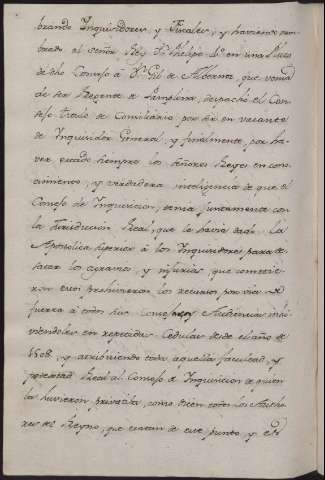 brando Inquisidores, y Fiscales, y haviendo nom-
brado el señor Rey Dn. Phelipe 4o. en una Plaza
de dho Consejo à Dn. Gil de Albornoz, que venia
de ser Regente de Pamplona, despachó el Con-
sejo titulo de Consiliario por ser en vacante
de Inquisidor General, y finalmente por ha-
ver estado siempre los señores Reyes en cono-
cimiento, y verdadera inteligencia de que el
Consejo de Inquisicion, tenia juntamente con
la Jurisdicion Real, que le havia dado, la
Apostolica superior à los Inquisidores para de-
satar los agravios, y injurias que cometie-
ron estos prohivieron los recursos por via de
fuerza à todos sus Consejos, y Audiencias inhi-
viendoles en repetidas Cedulas desde el año de
1508, y atribuiendo toda aquella facultad, y
potestad Real al Consejo de Inquisicion de quien
la huvieron privativa, como dicen todos los Autho-
res del Reyno, que tratan de este punto, y el